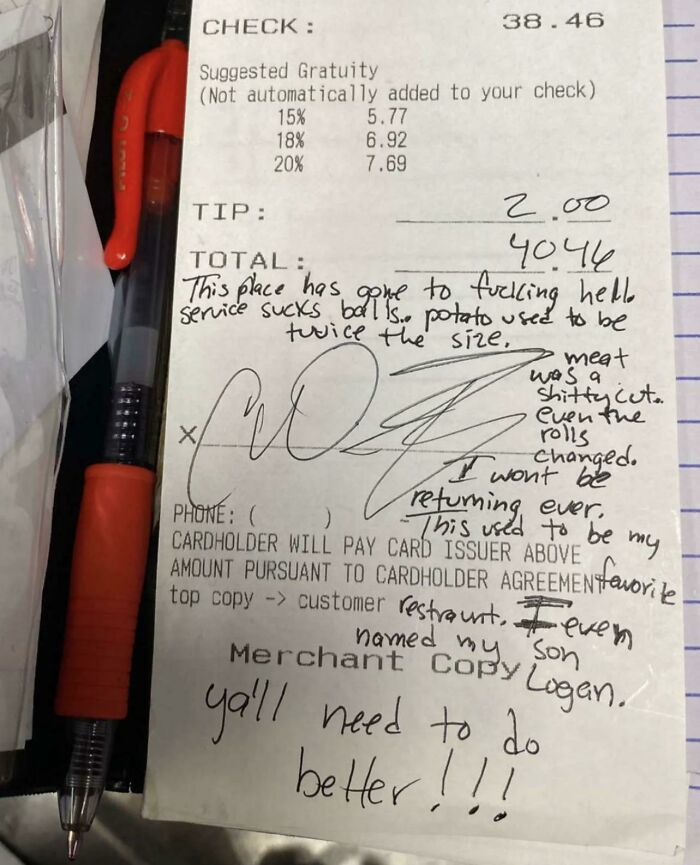 PILOT
CHECK: 38.46
Suggested Gratuity
(Not automatically added to your check)
15% 5.77
18% 6.92
20% 7.69
TIP: 2.00
TOTAL: 40.46
This place has gone to fucking hell.
service sucks balls.. potato used to be
twice the size.
meat
was a
shitty cut..
even the
rolls
changed.
X
I wont be
returning ever.
- This used to be my
favorite
restraunt. I even
named my son
Logan.
PHONE: ( )
CARDHOLDER WILL PAY CARD ISSUER ABOVE
AMOUNT PURSUANT TO CARDHOLDER AGREEMENT
top copy -> customer
Merchant Copy
ya'll need to do
better!!!